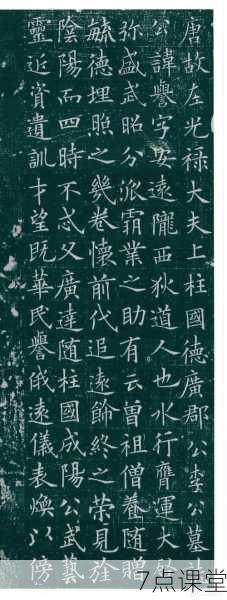 唐故左光禄大夫上柱國德廣郡公李公墓
公諱譽字安遠隴西狄道人也水行膺運大
弥盛武昭分派霸業之助有云曾祖僧養随贈
毓德埋照之幾卷懷前代追遠飾終之榮見
陰陽而四時不忒又廣達随柱國成陽公武藝
靈近資遺訓才望既華民譽俄遠儀表煥以傍
7点课堂